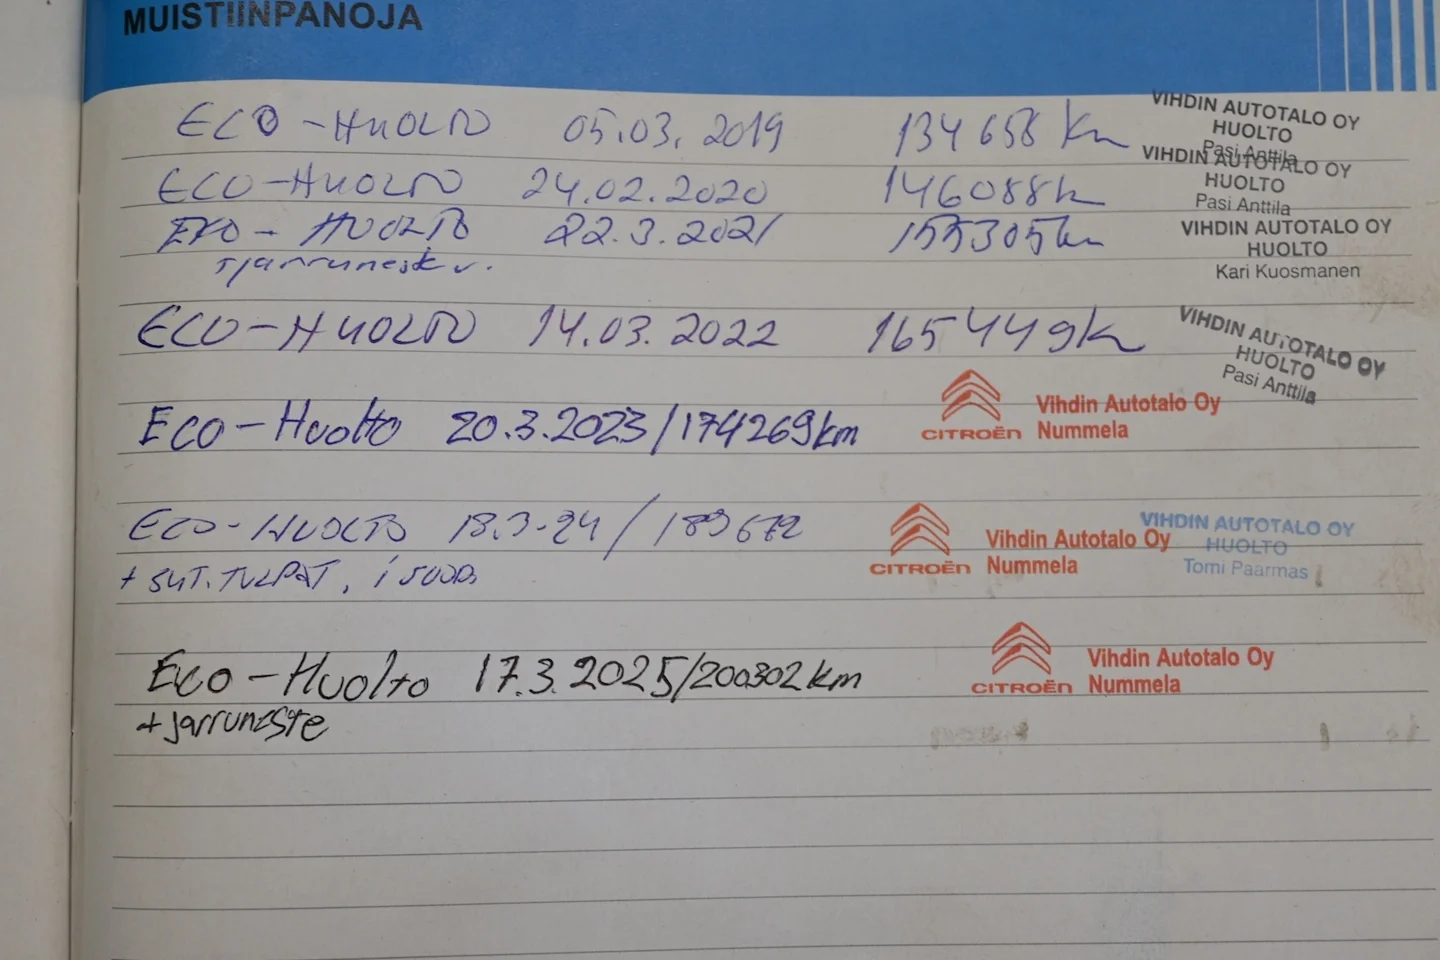 MUISTIINPANOJA
ECO-HUOLTO 05.03.2019 134658 km VIHDIN AUTOTALO OY
HUOLTO
Pasi Anttila
ECO-HUOLTO 24.02.2020 146088km VIHDIN AUTOTALO OY
HUOLTO
Pasi Anttila
EKO-HUOLTO 22.3.2021 155305km VIHDIN AUTOTALO OY
HUOLTO
Kari Kuosmanen
+jarrunesk v.
ECO-HUOLTO 14.03.2022 165449km VIHDIN AUTOTALO OY
HUOLTO
Pasi Anttila
Eco-Huolto 20.3.2023/174269km CITROËN Vihdin Autotalo Oy
Nummela
ECO-HUOLTO 18.3-24/189672 CITROËN Vihdin Autotalo Oy
Nummela
VIHDIN AUTOTALO OY
HUOLTO
Tomi Paarmas
+ SYT.TULPAT,
Eco-Huolto 17.3.2025/200302km CITROËN Vihdin Autotalo Oy
Nummela
+jarruneste